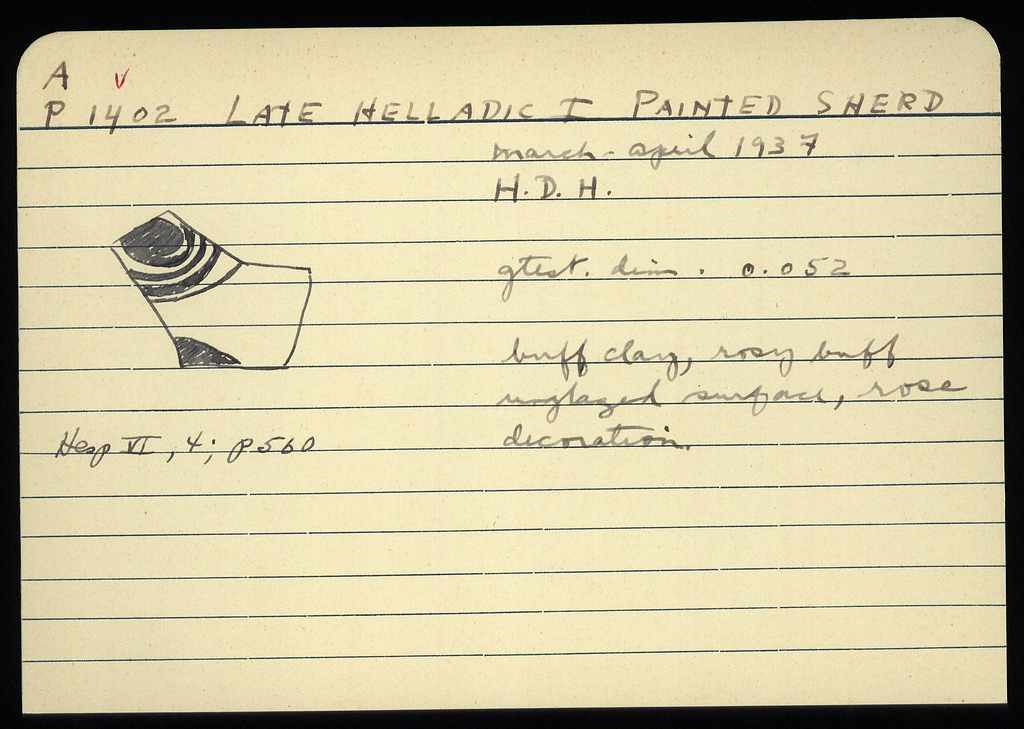 A v
P 1402 LATE HELLADIC I PAINTED SHERD
march - april 1937
H.D.H.
gtest. dim. 0.052
buff clay, rosy buff
unglazed surface, rose
decoration.
Hesp VI, 4; p 560